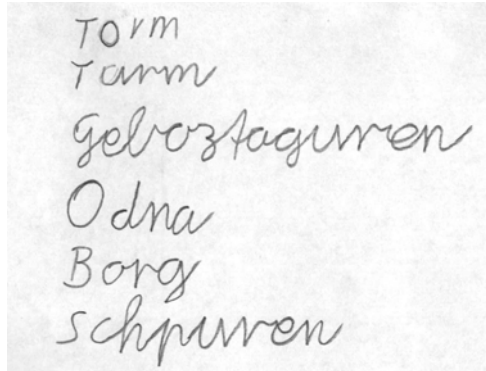 Torm
Tarm
Geboztaguren
Odna
Borg
Schpuren